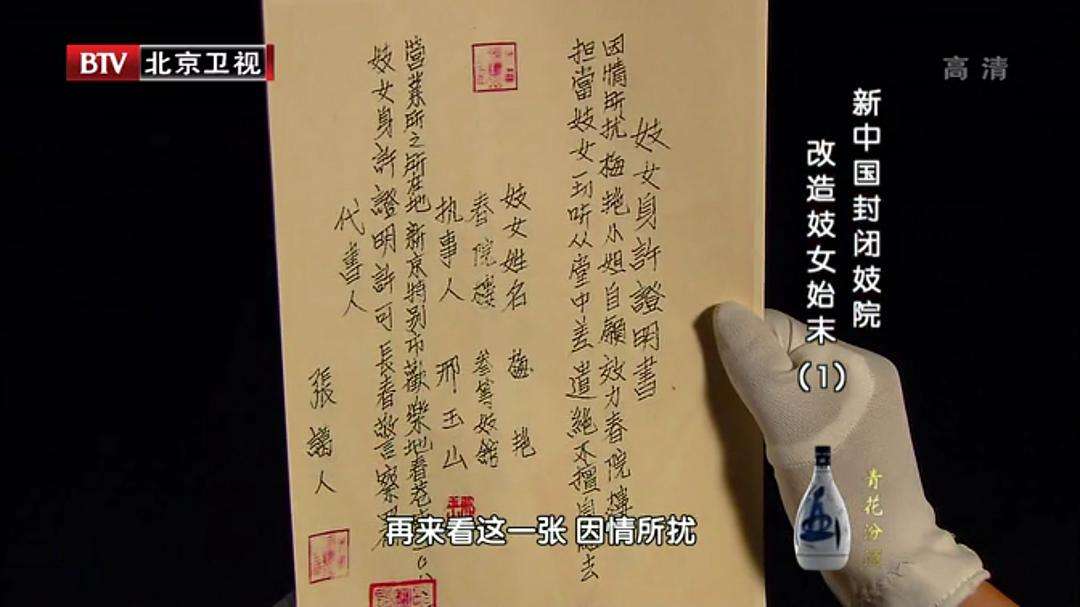 BTV 北京卫视
高清
新中国封闭妓院
改造妓女始末
(1)
妓女身許證明書
因情所扰梅艳小姐自願效力春院樓
担當妓女一切听从堂中差遣絕不擅自離去
妓女姓名 梅艳
春院樓 叁等妓舘
执事人 邢玉山
營業所之所在地新京特别市歡樂地春花
妓女身許證明許可長春敬言察
代書人 張 人
再来看这一张 因情所扰
青花汾酒